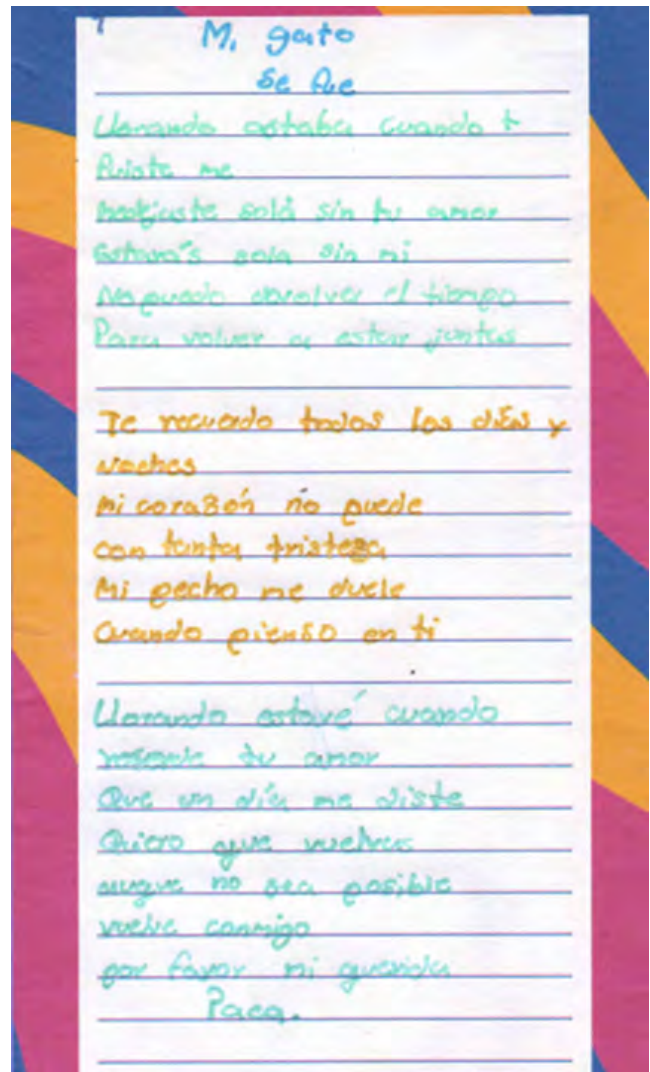 Mi gato
se fue
Llorando estaba cuando t
fuiste me
dejaste sola sin tu amor
Estarás sola sin mi
No puedo el tiempo
Para volver a estar juntas
Te recuerdo todos los días y
noches
Mi corazón no puede
con tanta tristeza
Mi pecho me duele
Cuando pienso en ti
Llorando estaré cuando
tu amor
Que un día me diste
Quiero que vuelvas
aunque no sea posible
vuelve conmigo
por favor mi querida
Paca.